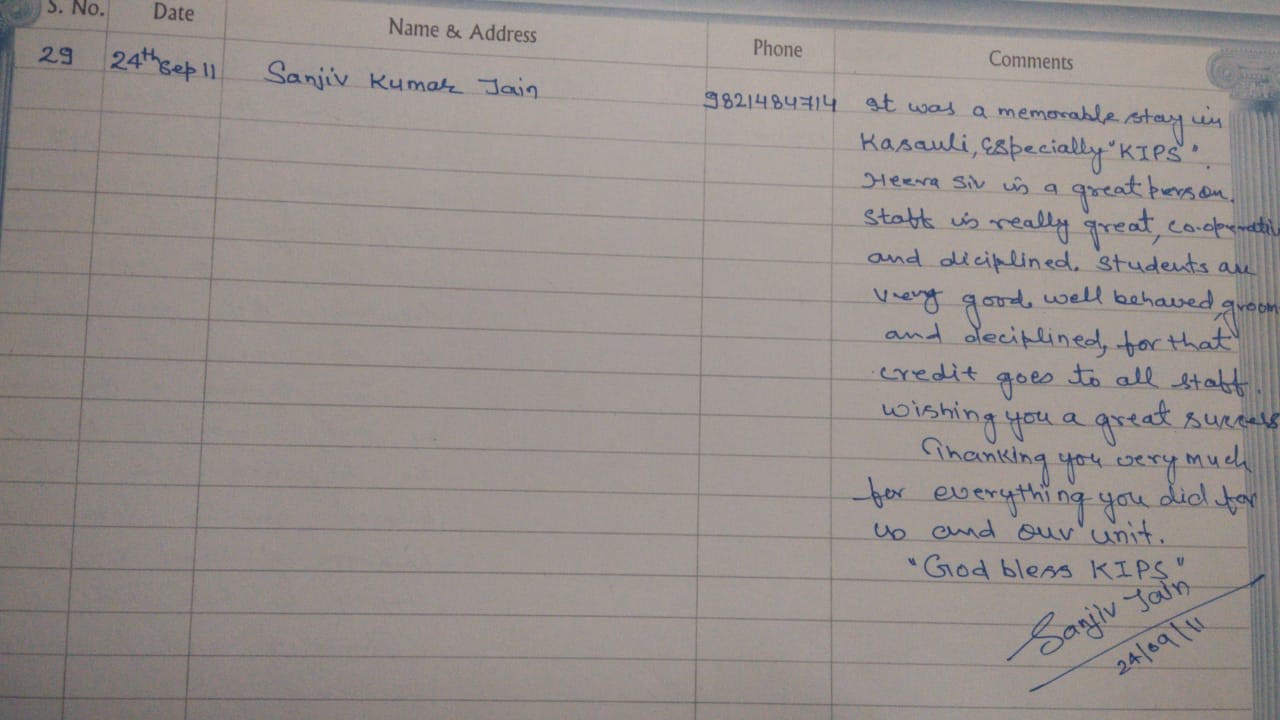 S. No. Date Name & Address Phone Comments
29 24th Sep 11 Sanjiv Kumar Jain 9821484714 It was a memorable stay in
Kasauli, Especially "KIPS".
Heera Sir is a great person.
Staff is really great, co-operativ
and diciplined. Students are
very good, well behaved, groom
and deciplined, for that
credit goes to all staff.
wishing you a great success
Thanking you very much
for everything you did for
us and our unit.
"God bless KIPS"
Sanjiv Jain
24/09/11